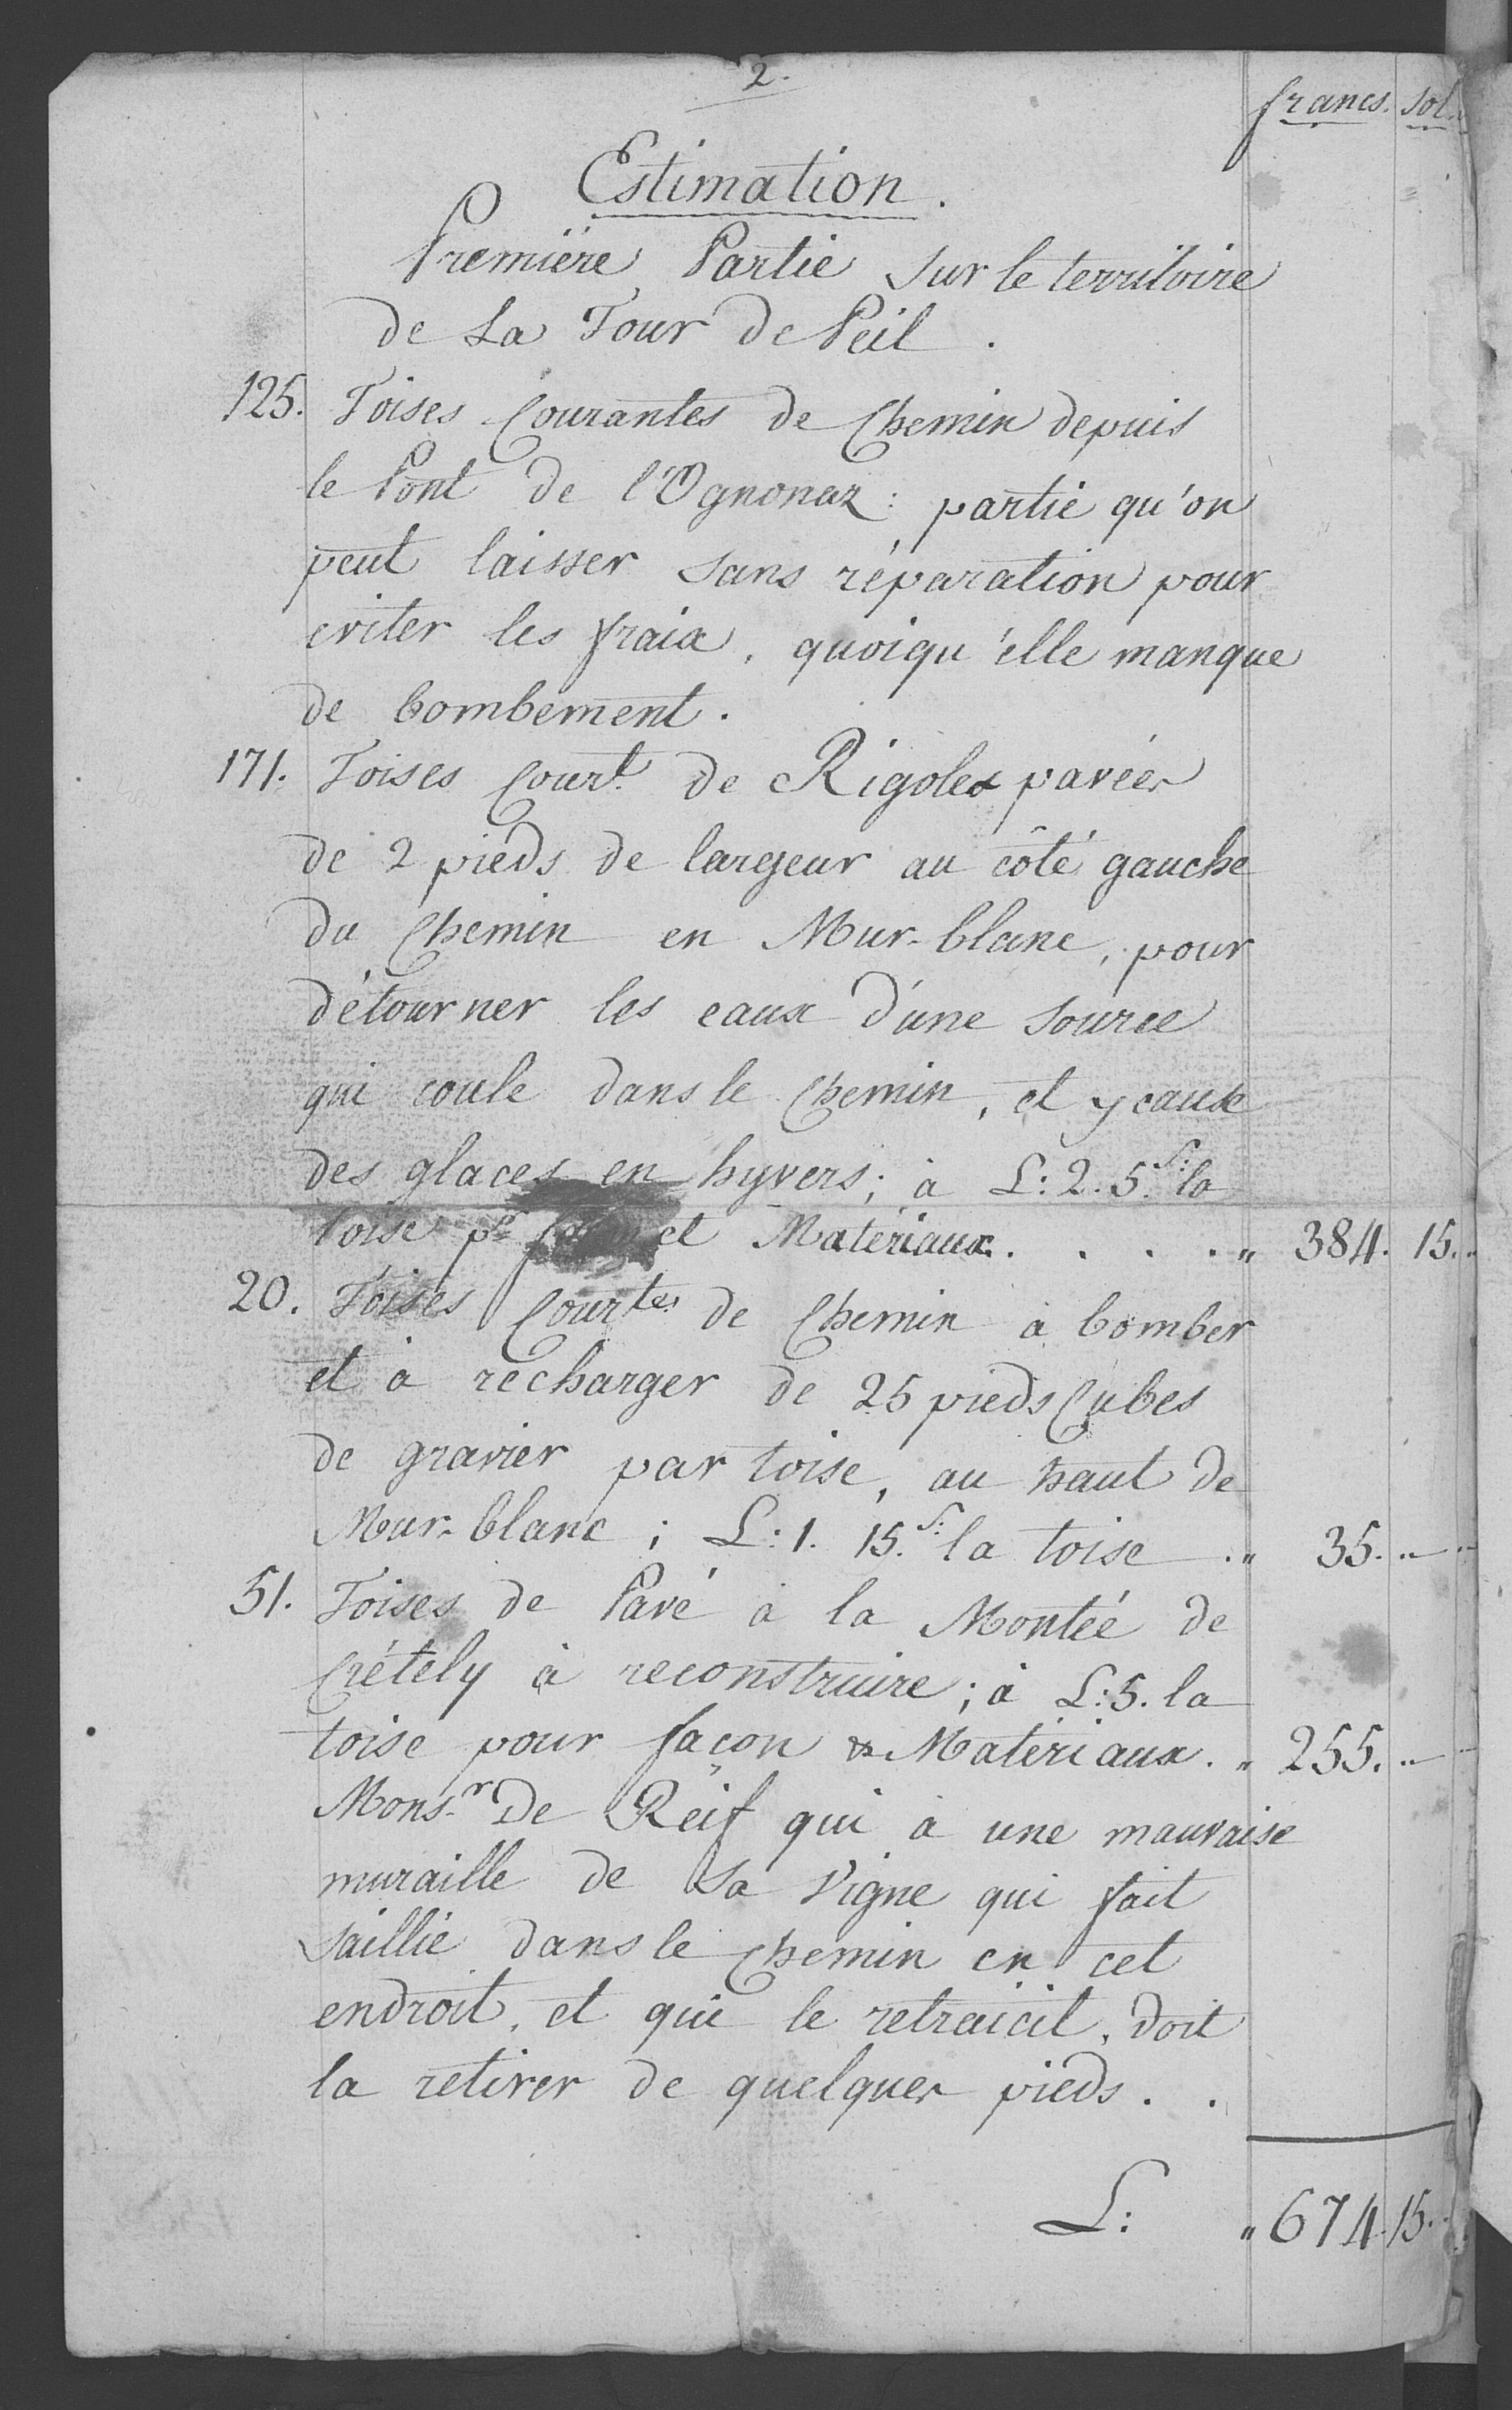 2.
francs. sol.
Estimation.
Premiére Partie sur le territoire
de La Tour de Peil.
125. Toises Courantes de Chemin depuis
le Pont de l'Ognonaz: partie qu'on
peut laisser sans réparation pour
eviter les fraix, quoiqu'elle manque
de bombement.
171. Toises Court. de Rigoles pavées
de 2 pieds de largeur au côté gauche
du Chemin en Mur-blanc, pour
détourner les eaux d'une source
qui coule dans le Chemin, et y cause
des glaces en hyvers; à L: 2. 5 s: la
toise pr. et Matériaux. . . . . " 384. 15. "
20. Toises Courtes de Chemin à bomber
et à recharger de 25 pieds Cubes
de gravier par toise, au haut de
Mur-blanc; L: 1. 15. s: la toise . " 35. " —
51. Toises de Pavé à la Montée de
Crétely à reconstruire; à L: 5. la
toise pour façon & Matériaux. " 255. " —
Monsr. De Reif qui à une mauvaise
muraille de Sa Vigne qui fait
saillie dans le Chemin en cet
endroit, et qui le retraicit, doit
la retirer de quelques pieds. .
L: " 674. 15.